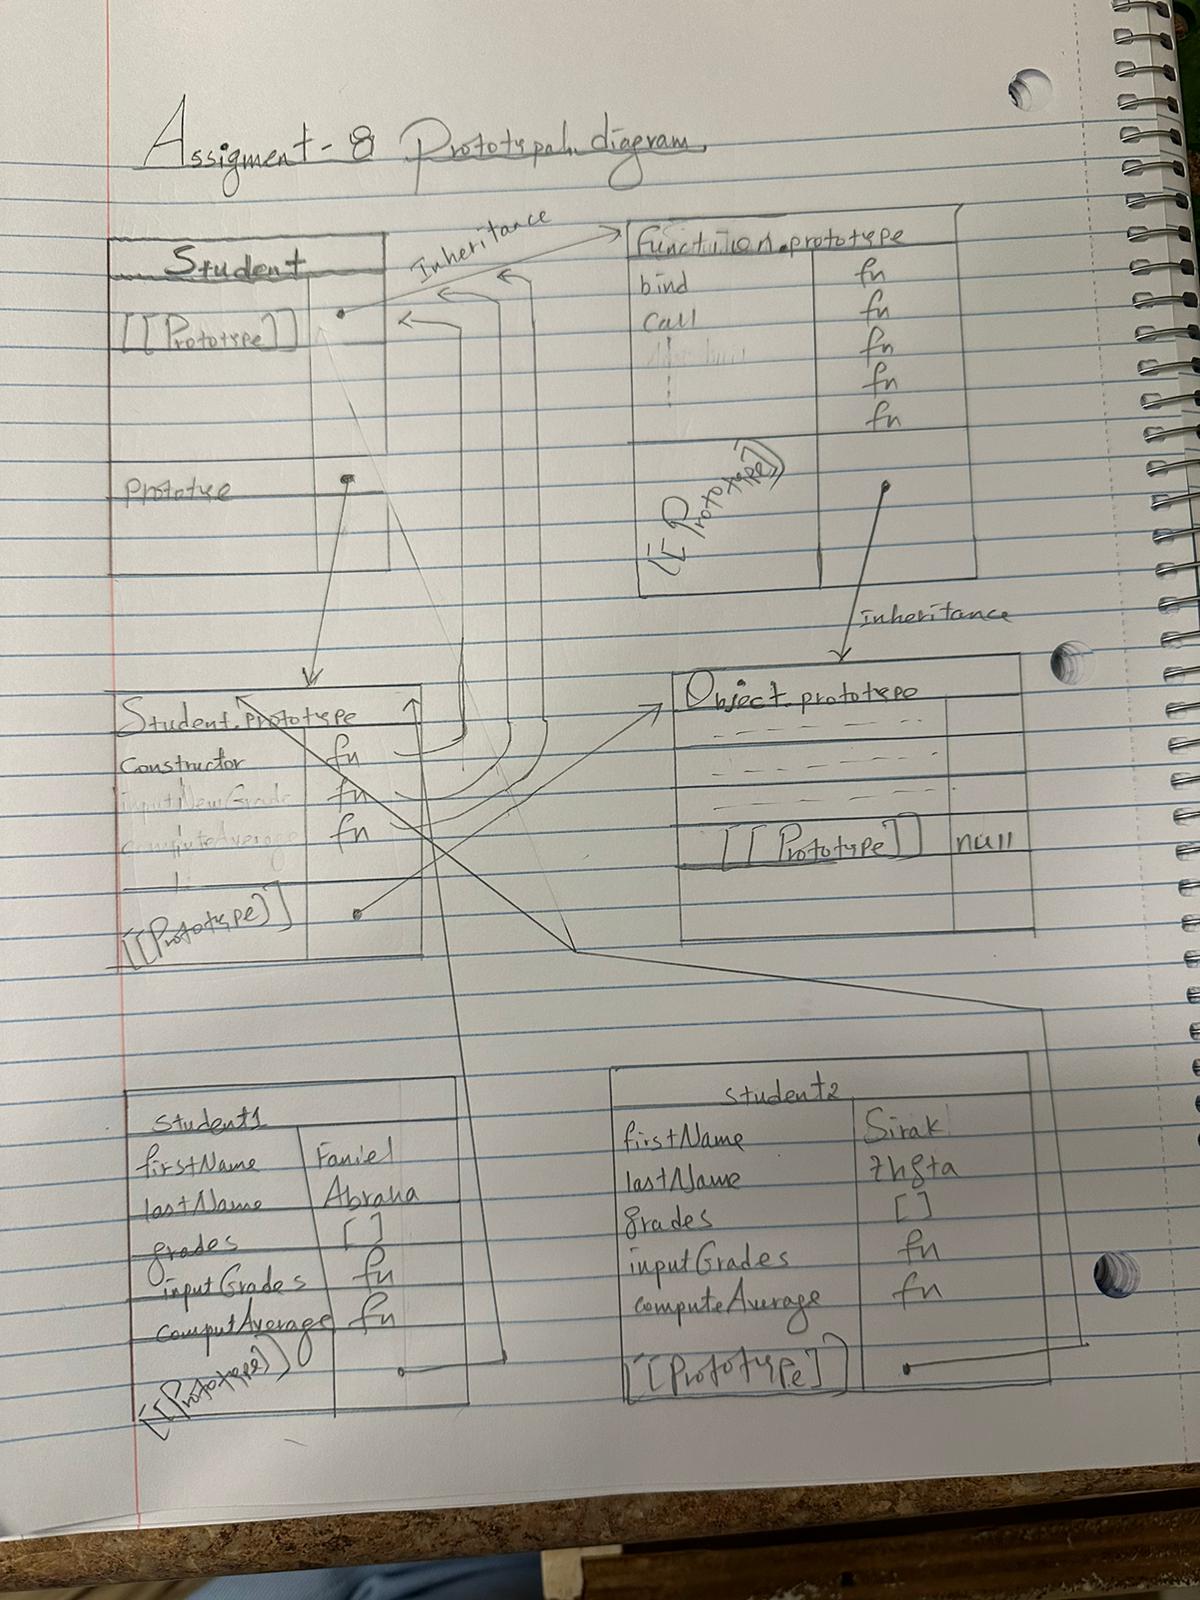 Assigment - 8 Prototypal diagram
Student
[[Prototype]]
Prototye
Inheritance
Function.prototype
bind fn
call fn
fn
fn
fn
[[Prototype]]
inheritance
Student.prototype
Constructor fn
inputNewGrade fn
computeAverage fn
[[Prototype]]
Object.prototype
[[Prototype]] null
Student1
firstName Faniel
lastName Abraha
grades []
inputGrades fn
computAverage fn
[[Prototype]]
student2
firstName Sirak
lastName
grades []
inputGrades fn
computeAverage fn
[[Prototype]]